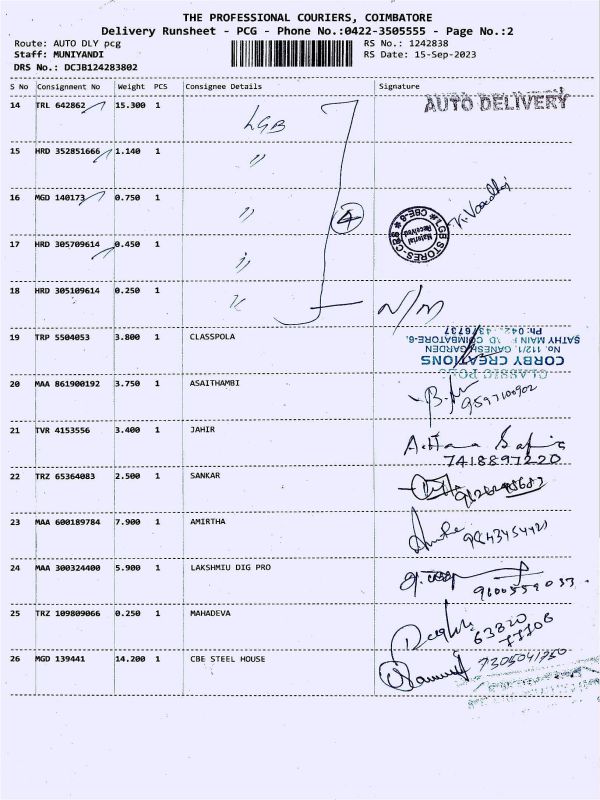 THE PROFESSIONAL COURIERS, COIMBATORE
Delivery Runsheet - PCG - Phone No.:0422-3505555 - Page No.:2
Route: AUTO DLY pcg RS No.: 1242838
Staff: MUNIYANDI RS Date: 15-Sep-2023
DRS No.: DCJB124283802
S No Consignment No Weight PCS Consignee Details Signature
14 TRL 642862 15.300 1 LGB AUTO DELIVERY
15 HRD 352851666 1.140 1 "
16 MGD 140173 0.750 1 "
4
LGB STORES-CBE
CBE-6
Material Received
17 HRD 305709614 0.450 1 "
18 HRD 305109614 0.250 1 " N/M
19 TRP 5504053 3.800 1 CLASSPOLA
CORBY CREATIONS
No. 112/1, GANESH GARDEN
SATHY MAIN ROAD, COIMBATORE-6.
20 MAA 861900192 3.750 1 ASAITHAMBI
9597100902
21 TVR 4153556 3.400 1 JAHIR
7418897220
22 TRZ 65364083 2.500 1 SANKAR
23 MAA 600189784 7.900 1 AMIRTHA
24 MAA 300324400 5.900 1 LAKSHMIU DIG PRO
9600559033
25 TRZ 109809066 0.250 1 MAHADEVA
63820
77106
26 MGD 139441 14.200 1 CBE STEEL HOUSE
7305041750